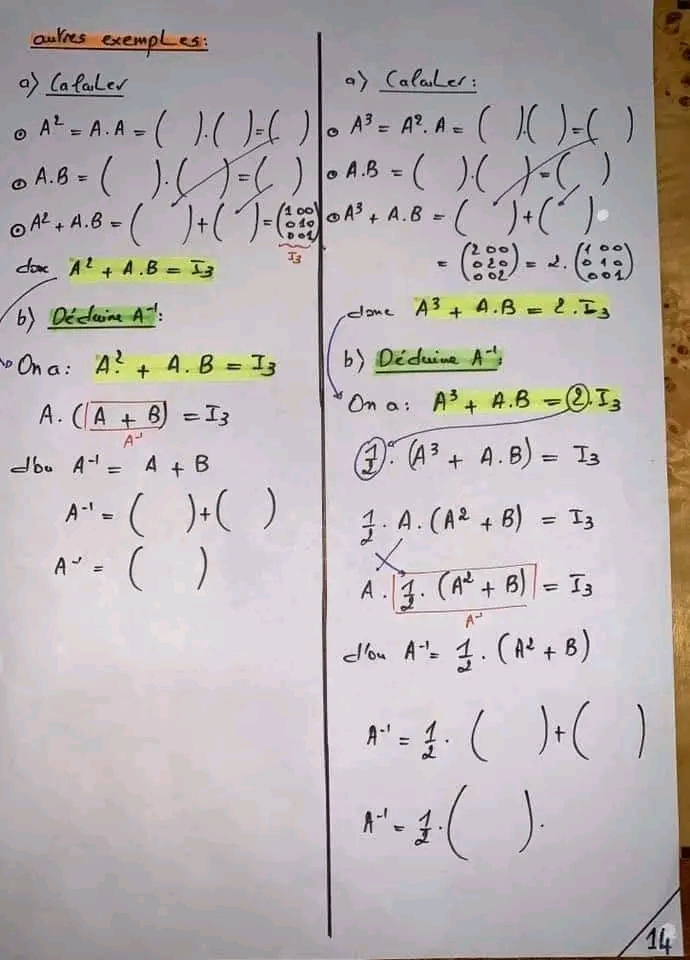 autres exemples:
a) Calculer
⊙ A² = A.A = ( ).( )=( )
⊙ A.B = ( ).( )=( )
⊙ A² + A.B = ( )+( )=(1 0 0
0 1 0
0 0 1)
I₃
donc A² + A.B = I₃
b) Déduire A⁻¹:
On a: A² + A.B = I₃
A.(A + B) = I₃
A⁻¹
d'où A⁻¹ = A + B
A⁻¹ = ( )+( )
A⁻¹ = ( )
a) Calculer:
• A³ = A².A = ( ).( )=( )
• A.B = ( ).( )=( )
• A³ + A.B = ( )+( )
= (2 0 0
0 2 0
0 0 2) = 2.(1 0 0
0 1 0
0 0 1)
donc A³ + A.B = 2.I₃
b) Déduire A⁻¹:
On a: A³ + A.B = 2.I₃
1/2.(A³ + A.B) = I₃
1/2.A.(A² + B) = I₃
A.1/2.(A² + B) = I₃
A⁻¹
d'où A⁻¹ = 1/2.(A² + B)
A⁻¹ = 1/2.( )+( )
A⁻¹ = 1/2.( ).
14